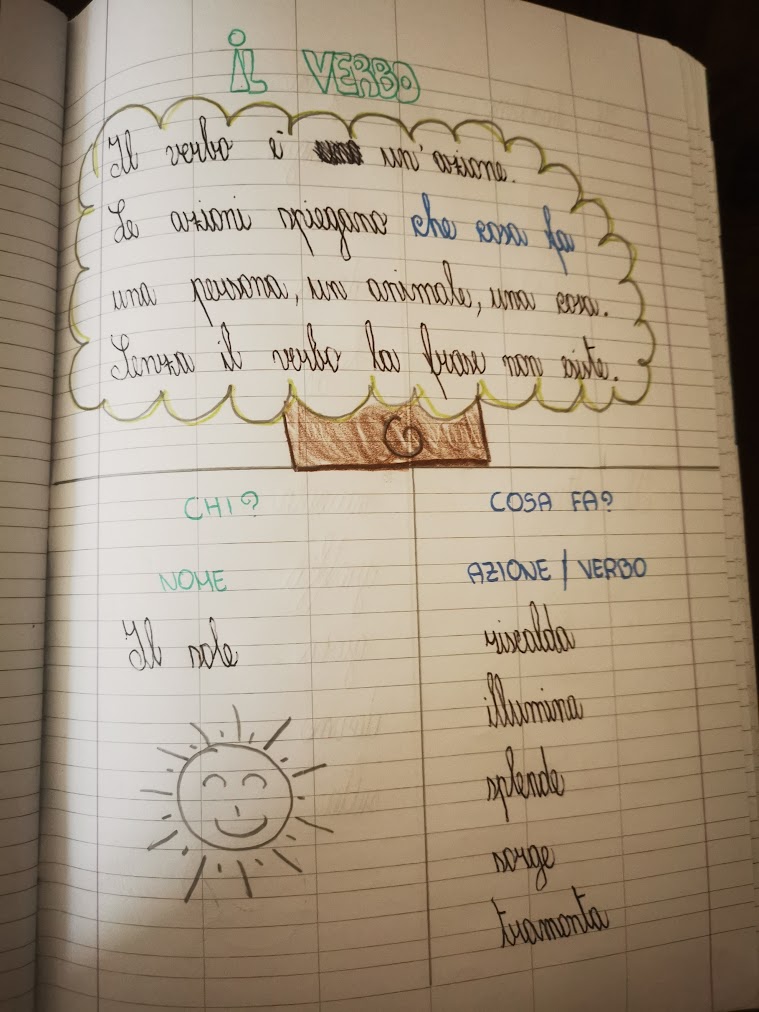 IL VERBO
Il verbo è un'azione.
Le azioni spiegano che cosa fa
una persona, un animale, una cosa.
Senza il verbo la frase non esiste.
CHI?
COSA FA?
NOME
AZIONE / VERBO
Il sole
riscalda
illumina
splende
sorge
tramonta